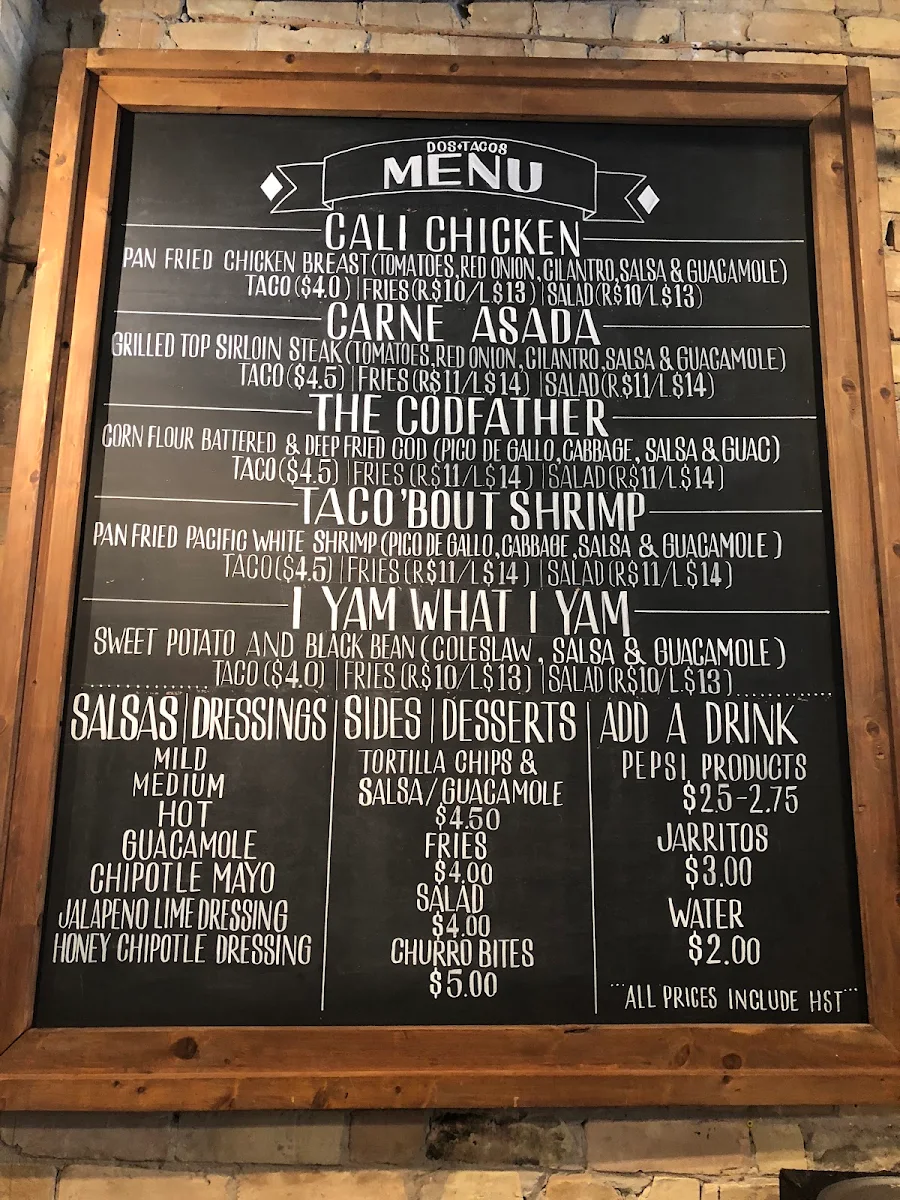 DOS•TACOS
MENU
CALI CHICKEN
PAN FRIED CHICKEN BREAST (TOMATOES, RED ONION, CILANTRO, SALSA & GUACAMOLE)
TACO ($4.0) | FRIES (R.$10/L$13) | SALAD (R$10/L$13)
CARNE ASADA
GRILLED TOP SIRLOIN STEAK (TOMATOES, RED ONION, CILANTRO, SALSA & GUACAMOLE)
TACO ($4.5) | FRIES (R$11/L$14) | SALAD (R.$11/L$14)
THE CODFATHER
CORN FLOUR BATTERED & DEEP FRIED COD (PICO DE GALLO, CABBAGE, SALSA & GUAC)
TACO ($4.5) | FRIES (R$11/L$14) | SALAD (R$11/L$14)
TACO 'BOUT SHRIMP
PAN FRIED PACIFIC WHITE SHRIMP (PICO DE GALLO, CABBAGE, SALSA & GUACAMOLE)
TACO ($4.5) | FRIES (R$11/L$14) | SALAD (R$11/L.$14)
I YAM WHAT I YAM
SWEET POTATO AND BLACK BEAN (COLESLAW, SALSA & GUACAMOLE)
TACO ($4.0) | FRIES (R$10/L$13) | SALAD (R$10/L.$13)
SALSAS | DRESSINGS
MILD
MEDIUM
HOT
GUACAMOLE
CHIPOTLE MAYO
JALAPENO LIME DRESSING
HONEY CHIPOTLE DRESSING
SIDES | DESSERTS
TORTILLA CHIPS &
SALSA/GUACAMOLE
$4.50
FRIES
$4.00
SALAD
$4.00
CHURRO BITES
$5.00
ADD A DRINK
PEPSI PRODUCTS
$2.5-2.75
JARRITOS
$3.00
WATER
$2.00
"ALL PRICES INCLUDE HST"